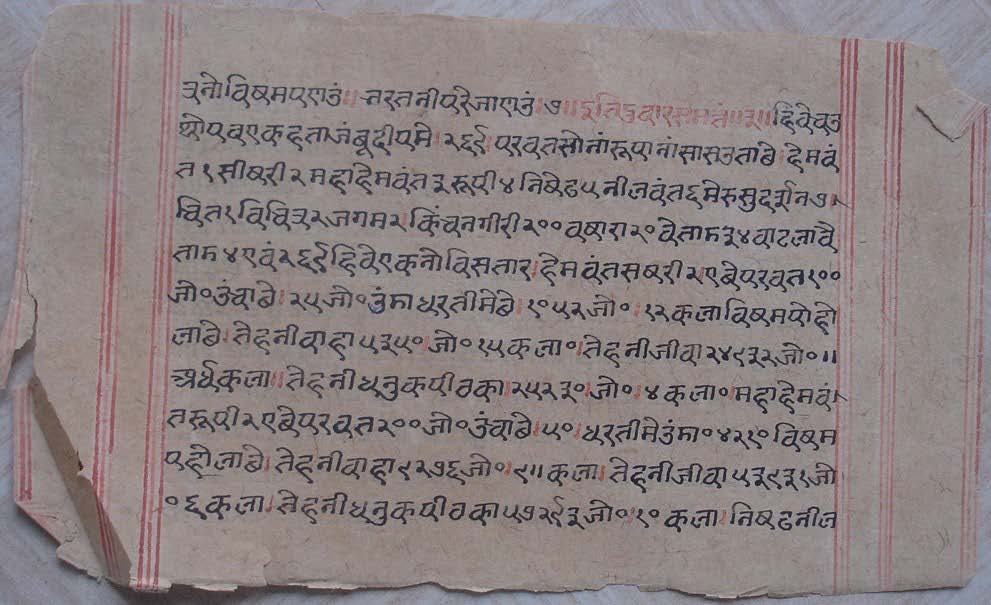 त्रनो विषमपणउं॥ चरतनी परे जाणउं ७॥ इति द्वारसमत्तं॥३॥ हिवे चउ
थो पव्वए कहता जंबूद्दीपमे २६९ परवत सोनां रूपानां सासउता बे हेमवं
त १ सीषरी २ महाहेमवंत ३ रूपी ४ निषढ ५ नीलवंत ६ मेरु सुदर्शन ७।
चित १ विचित्र २ जगम २ किंचनगीरी २०० वषारा २० वेताढ ३४ वाटलावै
ताढ ४ एवं २६९ हिवे एकनो विसतार। हेमवंत सषरी २ ए बे परवत १००
जो॰ उंचा बे। २५ जो॰ उंमा धरतीमे बे। १०५२ जो॰।१२ कला विषम पोहो
ला बे। तेहनी वाहा ५३५० जो॰।१५ कला॰। तेहनी जीवा २४९३२ जो॰॥
अर्ध कला॥ तेहनी धनुकपीठका। २५२३०। जो॰।४ कला॰। महाहेमवं
त रूपी २ ए बे परवत २०० जो॰ उंचा बे।५०। धरतीमे उंमा॰ ४२१० विषम
पहोला बे। तेहनी वाहा ९२७६ जो॰।९॥ कला। तेहनी जीवा ५३९३१ जो
॰ ६ कला। तेहनी धनुकपीठका ५७२९३ जो॰।१० कला। निषढ नील